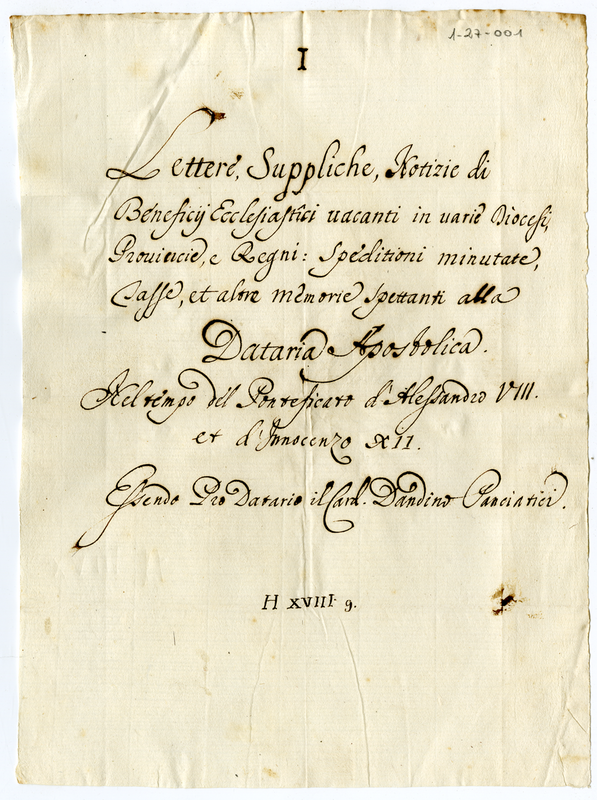 1-27-001
I
Lettere, Suppliche, Notizie di
Beneficij Ecclesiastici uacanti in uarie Diocesi,
Prouincie, e Regni: Speditioni minutate,
Tasse, et altre memorie spettanti alla
Dataria Apostolica.
Nel tempo del Pontificato d'Alessandro VIII.
et d'Innocenzo XII.
Essendo Pro Datario il Card. Bandino Panciatici.
H XVIII 9.